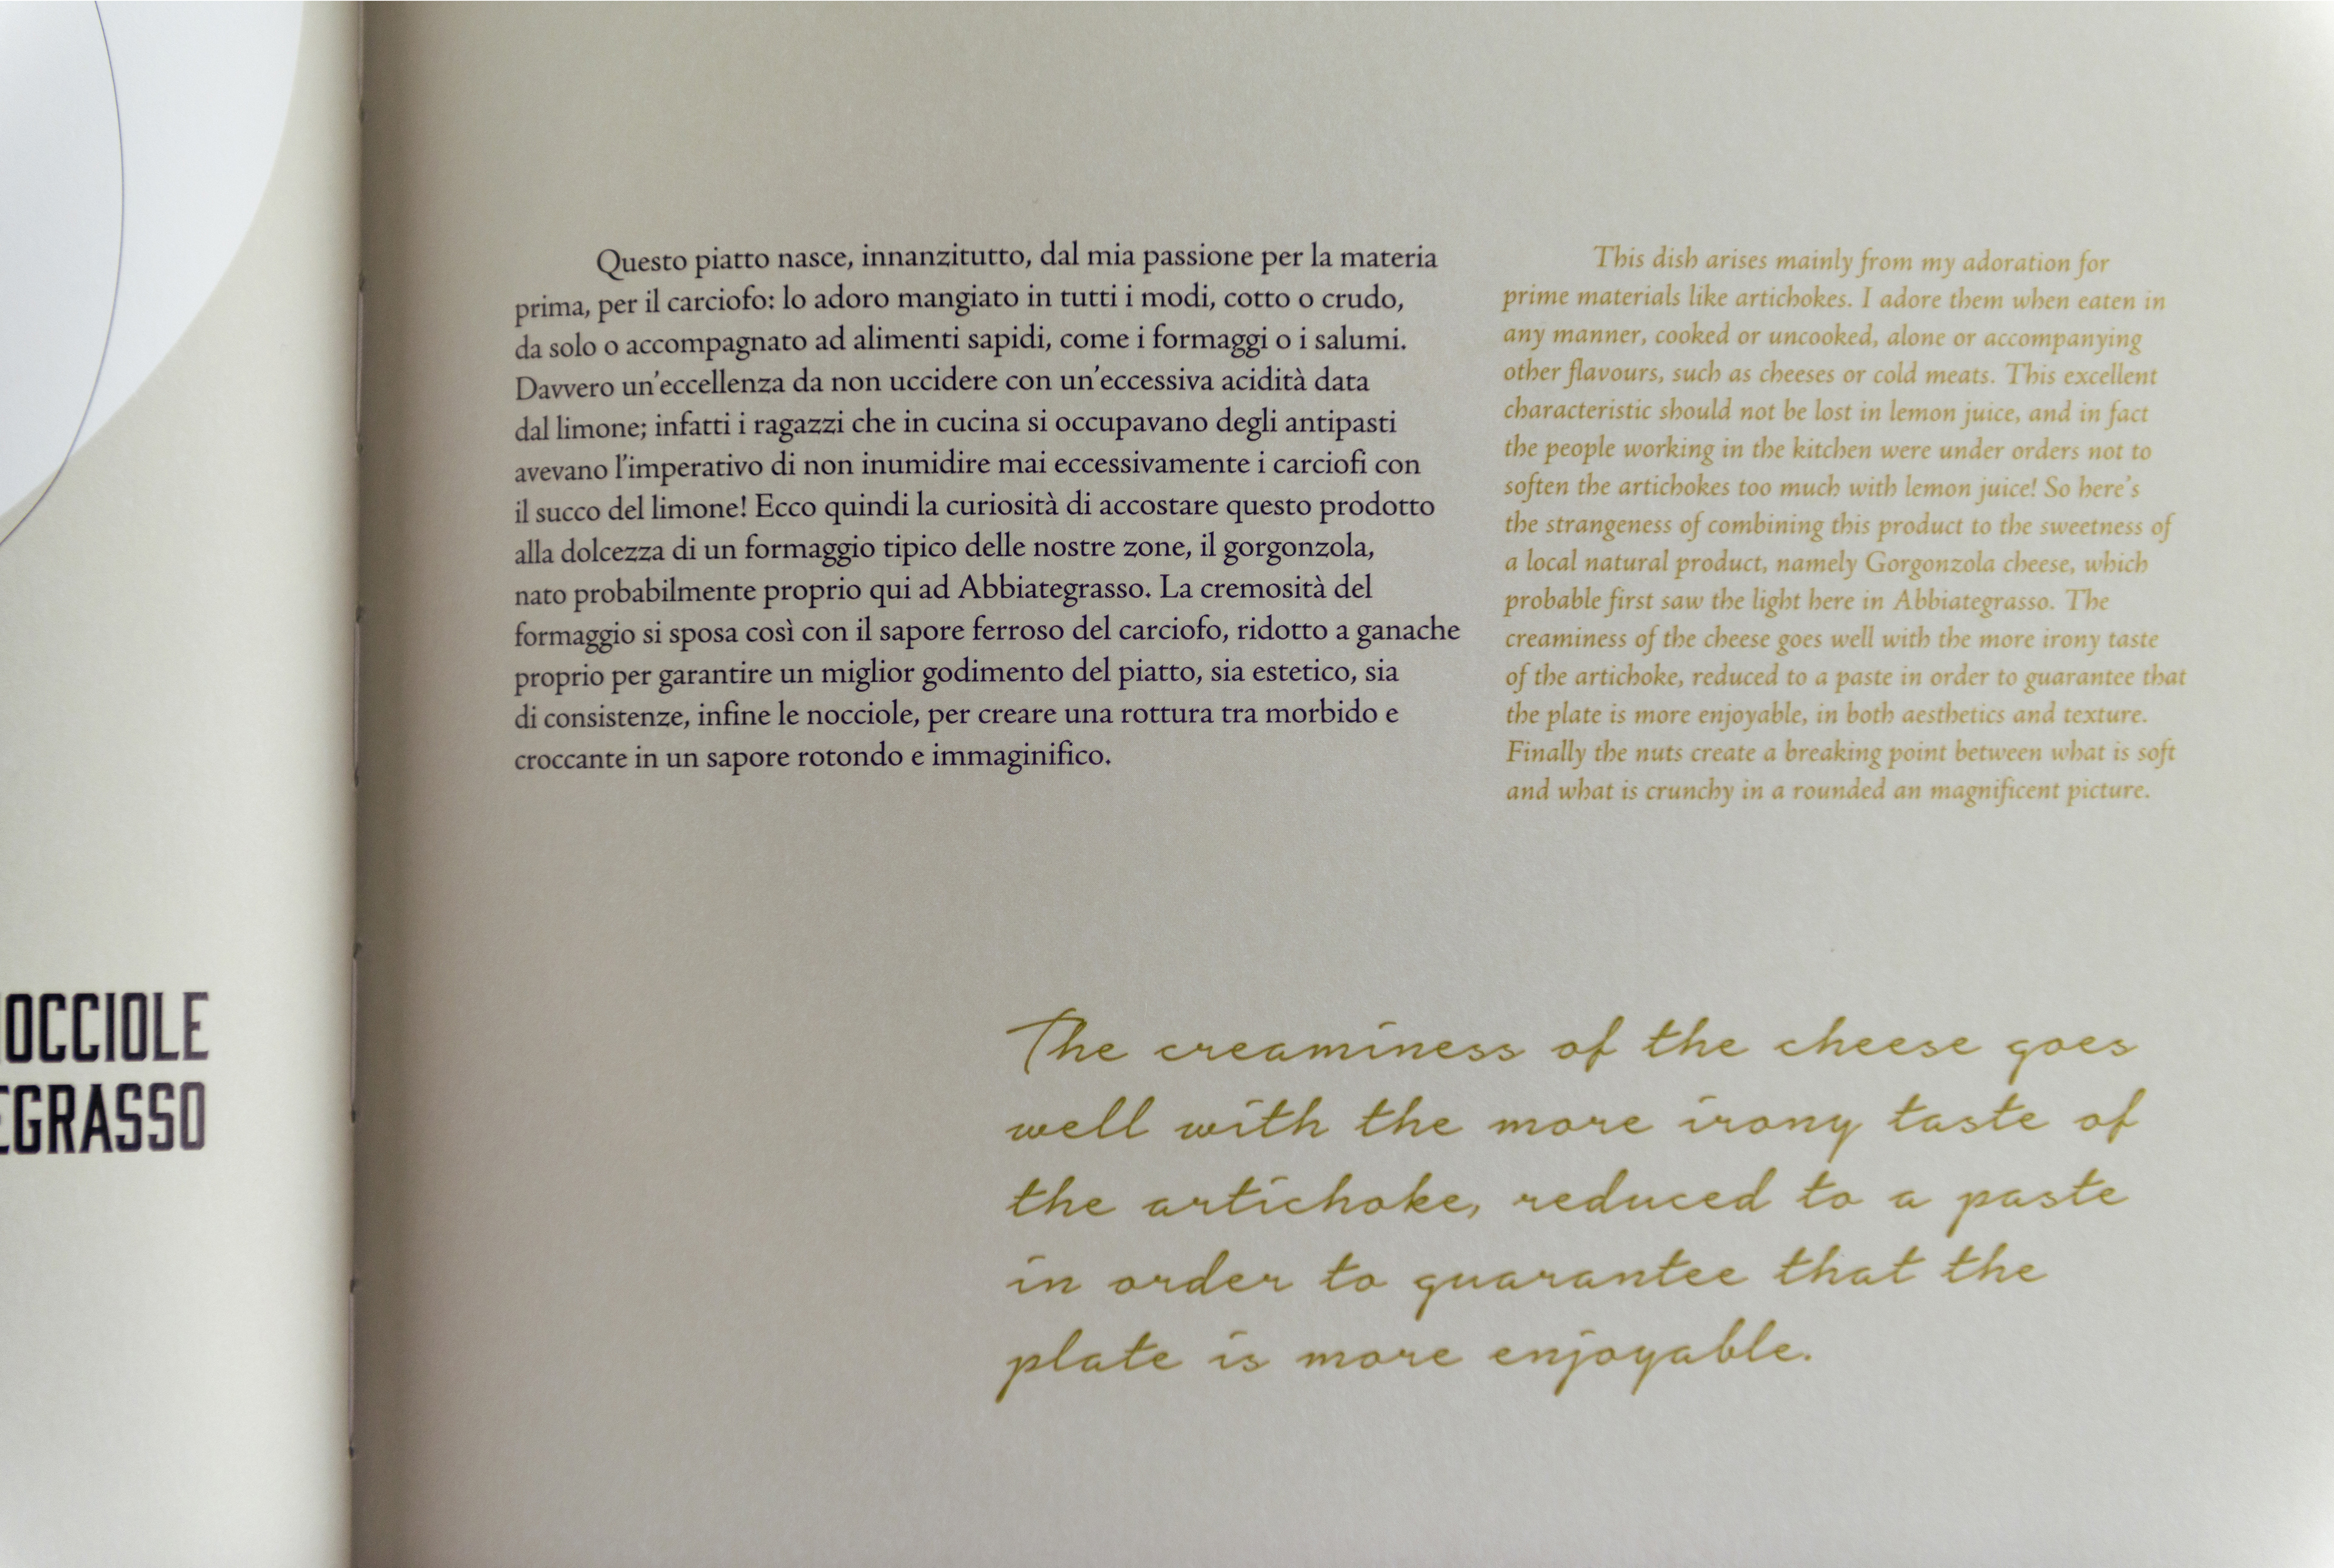 OCCIOLE
EGRASSO
Questo piatto nasce, innanzitutto, dal mia passione per la materia
prima, per il carciofo: lo adoro mangiato in tutti i modi, cotto o crudo,
da solo o accompagnato ad alimenti sapidi, come i formaggi o i salumi.
Davvero un'eccellenza da non uccidere con un'eccessiva acidità data
dal limone; infatti i ragazzi che in cucina si occupavano degli antipasti
avevano l'imperativo di non inumidire mai eccessivamente i carciofi con
il succo del limone! Ecco quindi la curiosità di accostare questo prodotto
alla dolcezza di un formaggio tipico delle nostre zone, il gorgonzola,
nato probabilmente proprio qui ad Abbiategrasso. La cremosità del
formaggio si sposa così con il sapore ferroso del carciofo, ridotto a ganache
proprio per garantire un miglior godimento del piatto, sia estetico, sia
di consistenze, infine le nocciole, per creare una rottura tra morbido e
croccante in un sapore rotondo e immaginifico.
This dish arises mainly from my adoration for
prime materials like artichokes. I adore them when eaten in
any manner, cooked or uncooked, alone or accompanying
other flavours, such as cheeses or cold meats. This excellent
characteristic should not be lost in lemon juice, and in fact
the people working in the kitchen were under orders not to
soften the artichokes too much with lemon juice! So here's
the strangeness of combining this product to the sweetness of
a local natural product, namely Gorgonzola cheese, which
probable first saw the light here in Abbiategrasso. The
creaminess of the cheese goes well with the more irony taste
of the artichoke, reduced to a paste in order to guarantee that
the plate is more enjoyable, in both aesthetics and texture.
Finally the nuts create a breaking point between what is soft
and what is crunchy in a rounded an magnificent picture.
The creaminess of the cheese goes
well with the more irony taste of
the artichoke, reduced to a paste
in order to guarantee that the
plate is more enjoyable.